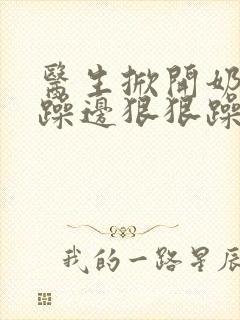 醫生掀開奶
躁邊狠狠躁
我的一路星辰